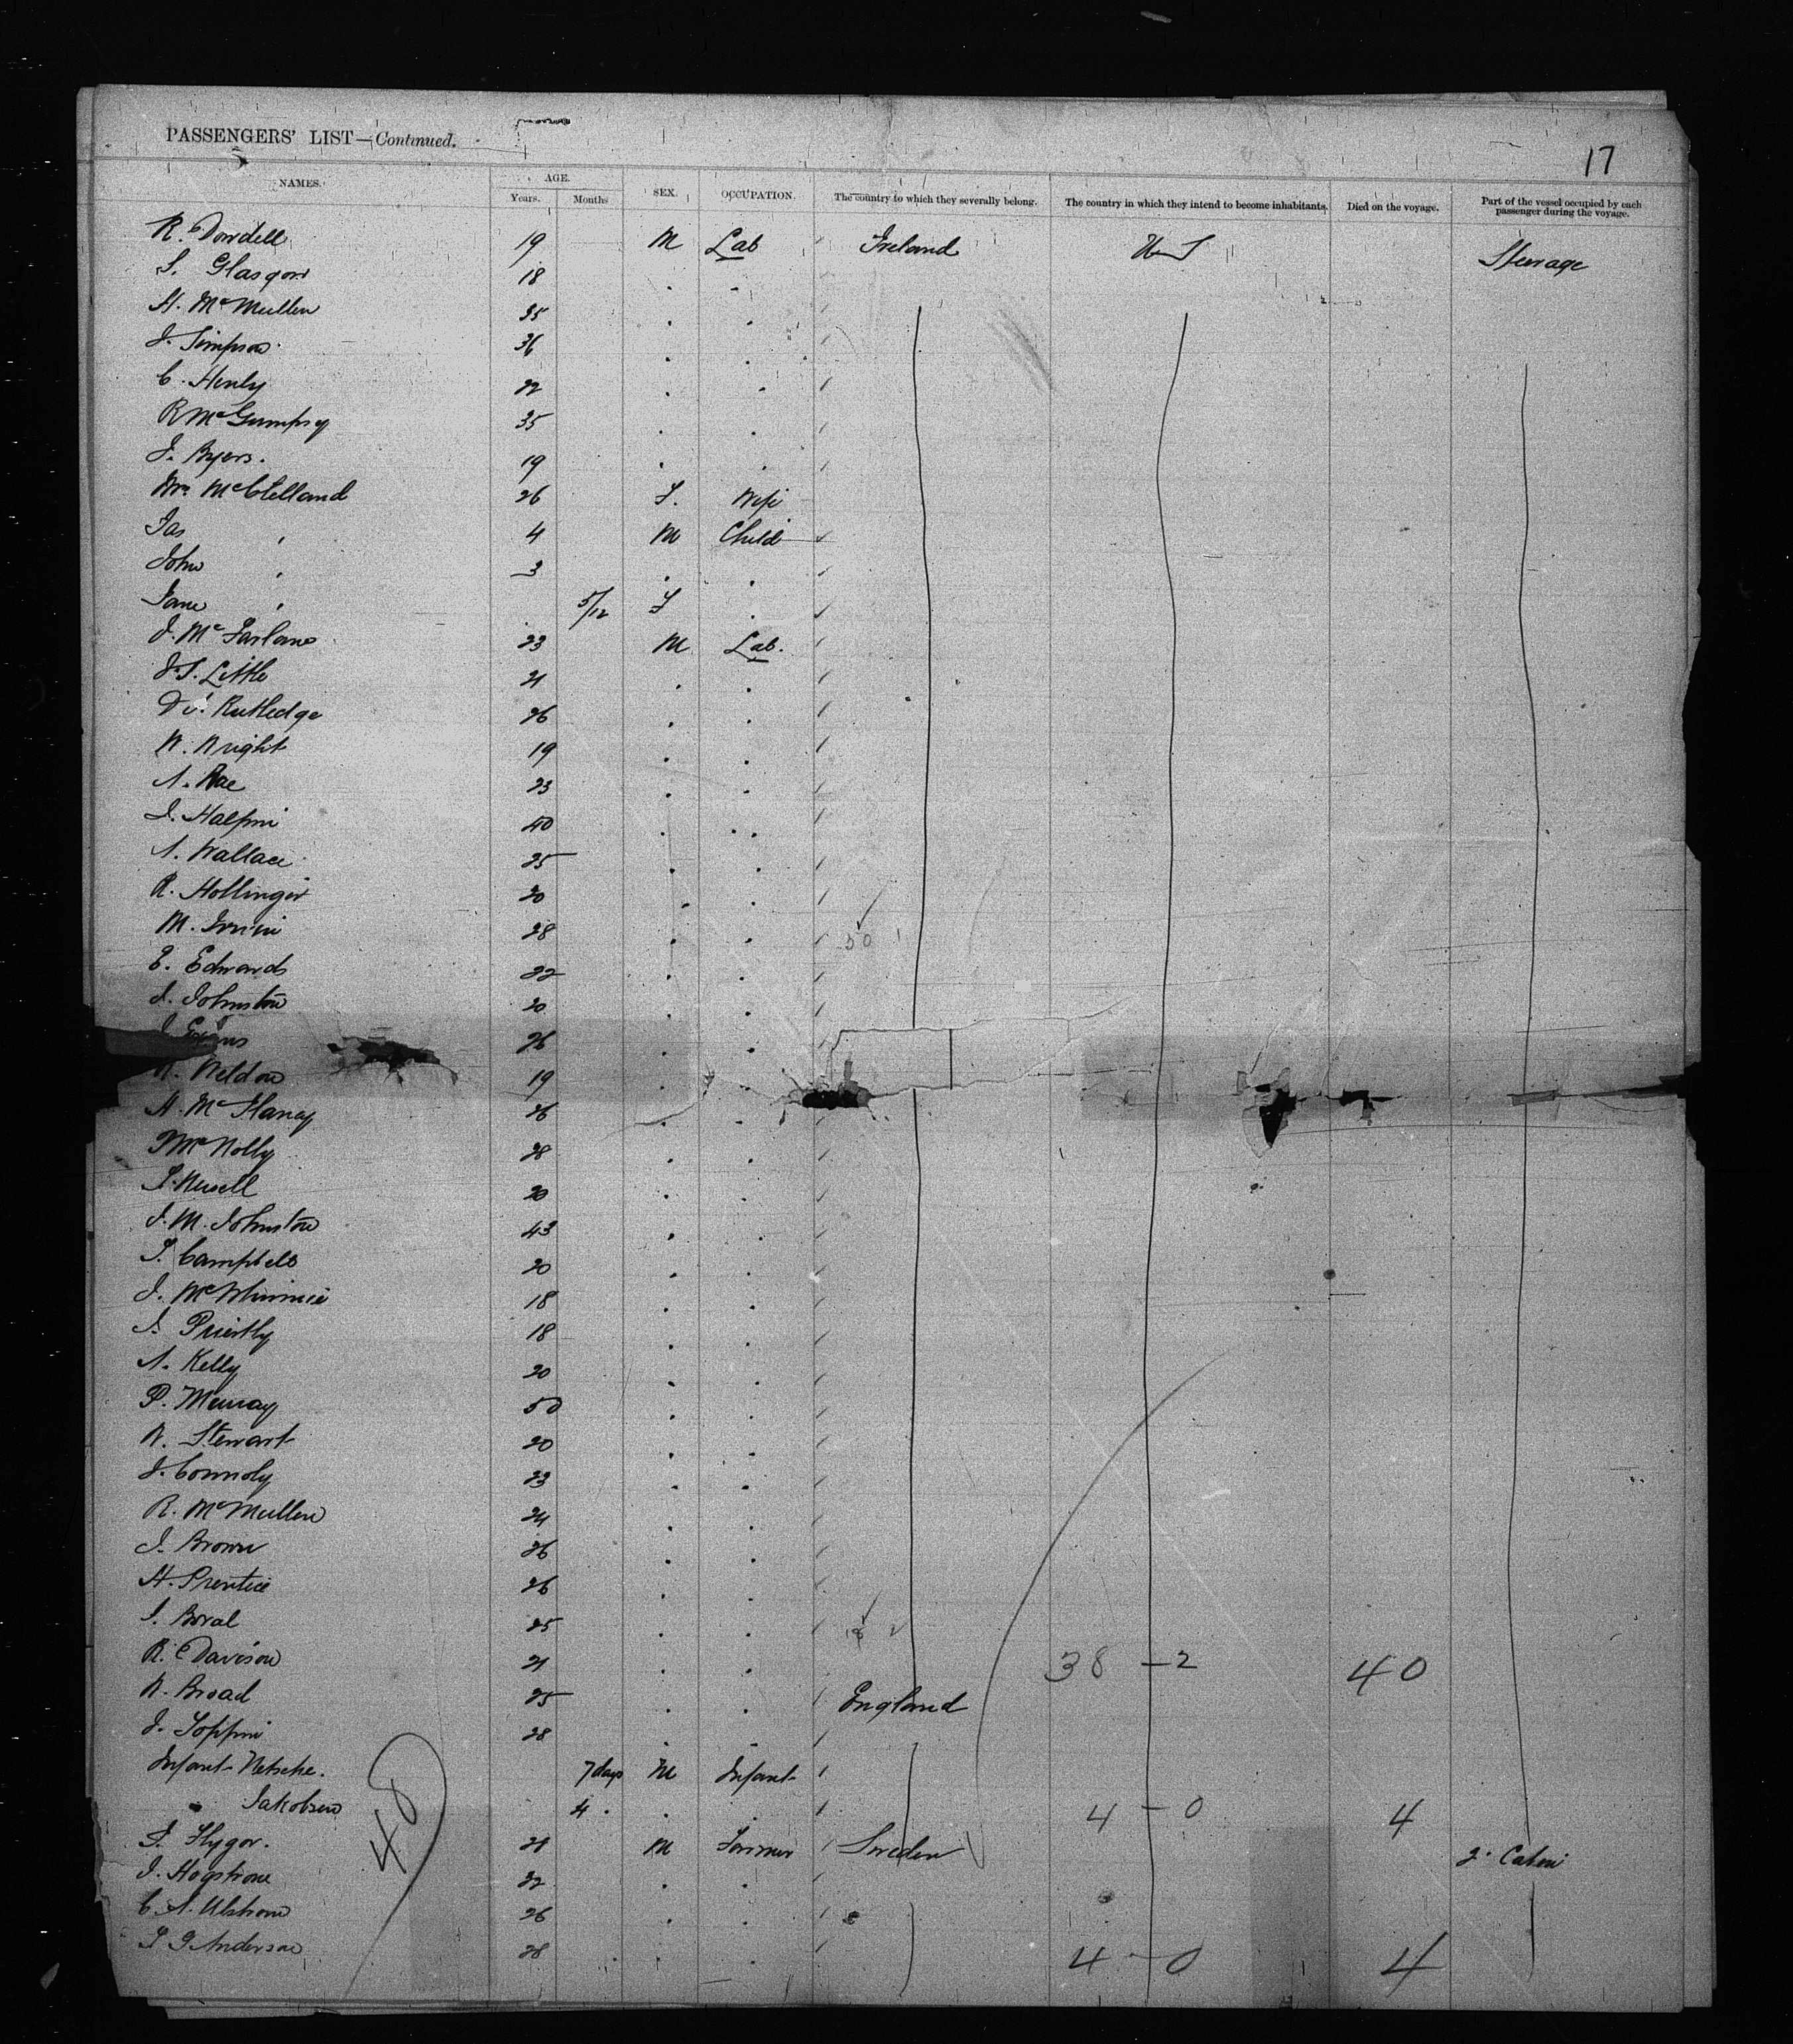 PASSENGERS' LIST—Continued.
17
NAMES. AGE. Years. Months SEX. OCCUPATION. The country to which they severally belong. The country in which they intend to become inhabitants. Died on the voyage. Part of the vessel occupied by each passenger during the voyage.
R. Dowdell 19 M Lab Ireland U S Steerage
S. Glasgow 18 . .
H. McMullen 35 . .
J. Simpson 36 . .
C. Henly 22 . .
R McGumpsy 35 . .
J. Byers. 19 . .
Mrs McClelland 26 F. Wife
Jas " 4 M Child
John " 3 . .
Jane " 5/12 F .
J. McFarlane 23 M Lab.
J.S. Little 21 . .
Rutledge 26 . .
W. Wright 19 . .
A. Rae 23 . .
J. Halpin 40 . .
A. Wallace 25 . .
R. Hollinger 20 . .
M. Irwin 28 . . 50
E. Edwards 22 . .
J. Johnston 20 . .
26 . .
Weldon 19 . .
H. 26 . .
28 . .
S. Newell 20 . .
J. M. Johnston 43 . .
S. Campbell 20 . .
J. McWhinnie 18 . .
J. Priestly 18 . .
A. Kelly 20 . .
P. Murray 50 . .
W. Stewart 20 . .
J. Connoly 23 . .
R. McMullen 24 . .
J. Brown 26 . .
H. Prentice 26 . .
25 . .
R. Davison 21 . . 38 - 2 40
W. Broad 25 . . England
J. 28 . .
Infant Netsche. 7 days M Infant
" Jakobsen 4 . . . 4 - 0 4
48
F. Flygor. 21 M Farmer Sweden 2. Cabin
J. Hogstrom 22 . .
C. A. Ulstrom 26 . .
Anderson 28 . . 4 - 0 4